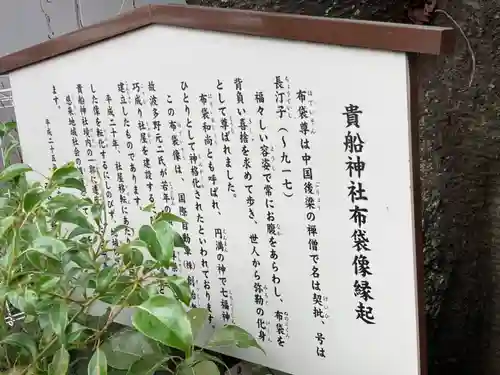 貴船神社布袋像縁起
布袋尊は中国後梁の禅僧で名は契批、号は
長汀子（〜九一七）
福々しい容姿で常にお腹をあらわし、布袋を
背負い喜捨を求めて歩き、世人から弥勒の化身
として尊ばれました。
布袋和尚とも呼ばれ、円満の神で七福神
ひとりとして神格化されたといわれております。
この布袋像は、国際自動車（株）創
故波多野元二氏が若年の
巧成り社屋を建設する
建立したものであります。
平成二十年、社屋移転にあた
した像を転化するにしのびず
貴船神社境内の一部に遷
息来地域社会の
ます。
平成二十五